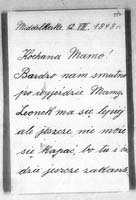 Middelkerke, 12 VIII. 1898 r.
Kochana Mamo!
Bardzo nam smutno
po wyjeździe Mamy.
Leonek ma się lepiej
ale jeszcze nie może
się kąpać, bo tu i
dzie jeszcze zakaz